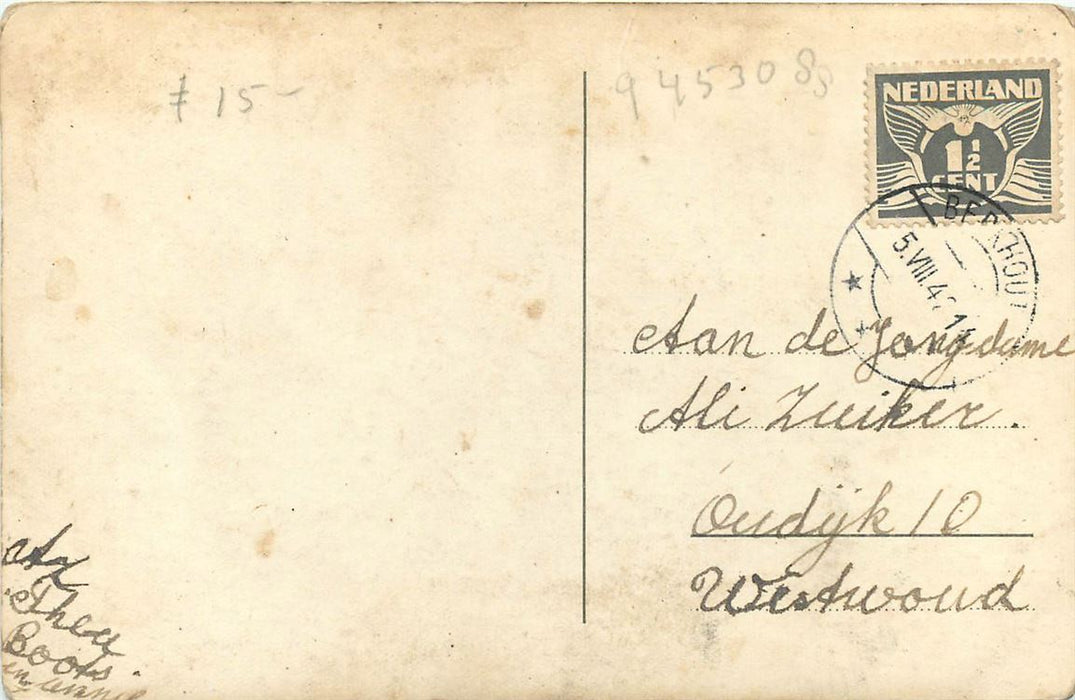 15-
9453089
NEDERLAND
1½
CENT
BERKHOUT
5.VIII.4
Aan de Jongedame
Ali Zuiker.
Oudijk 10
Westwoud
Afz
Theu
Boots.
en